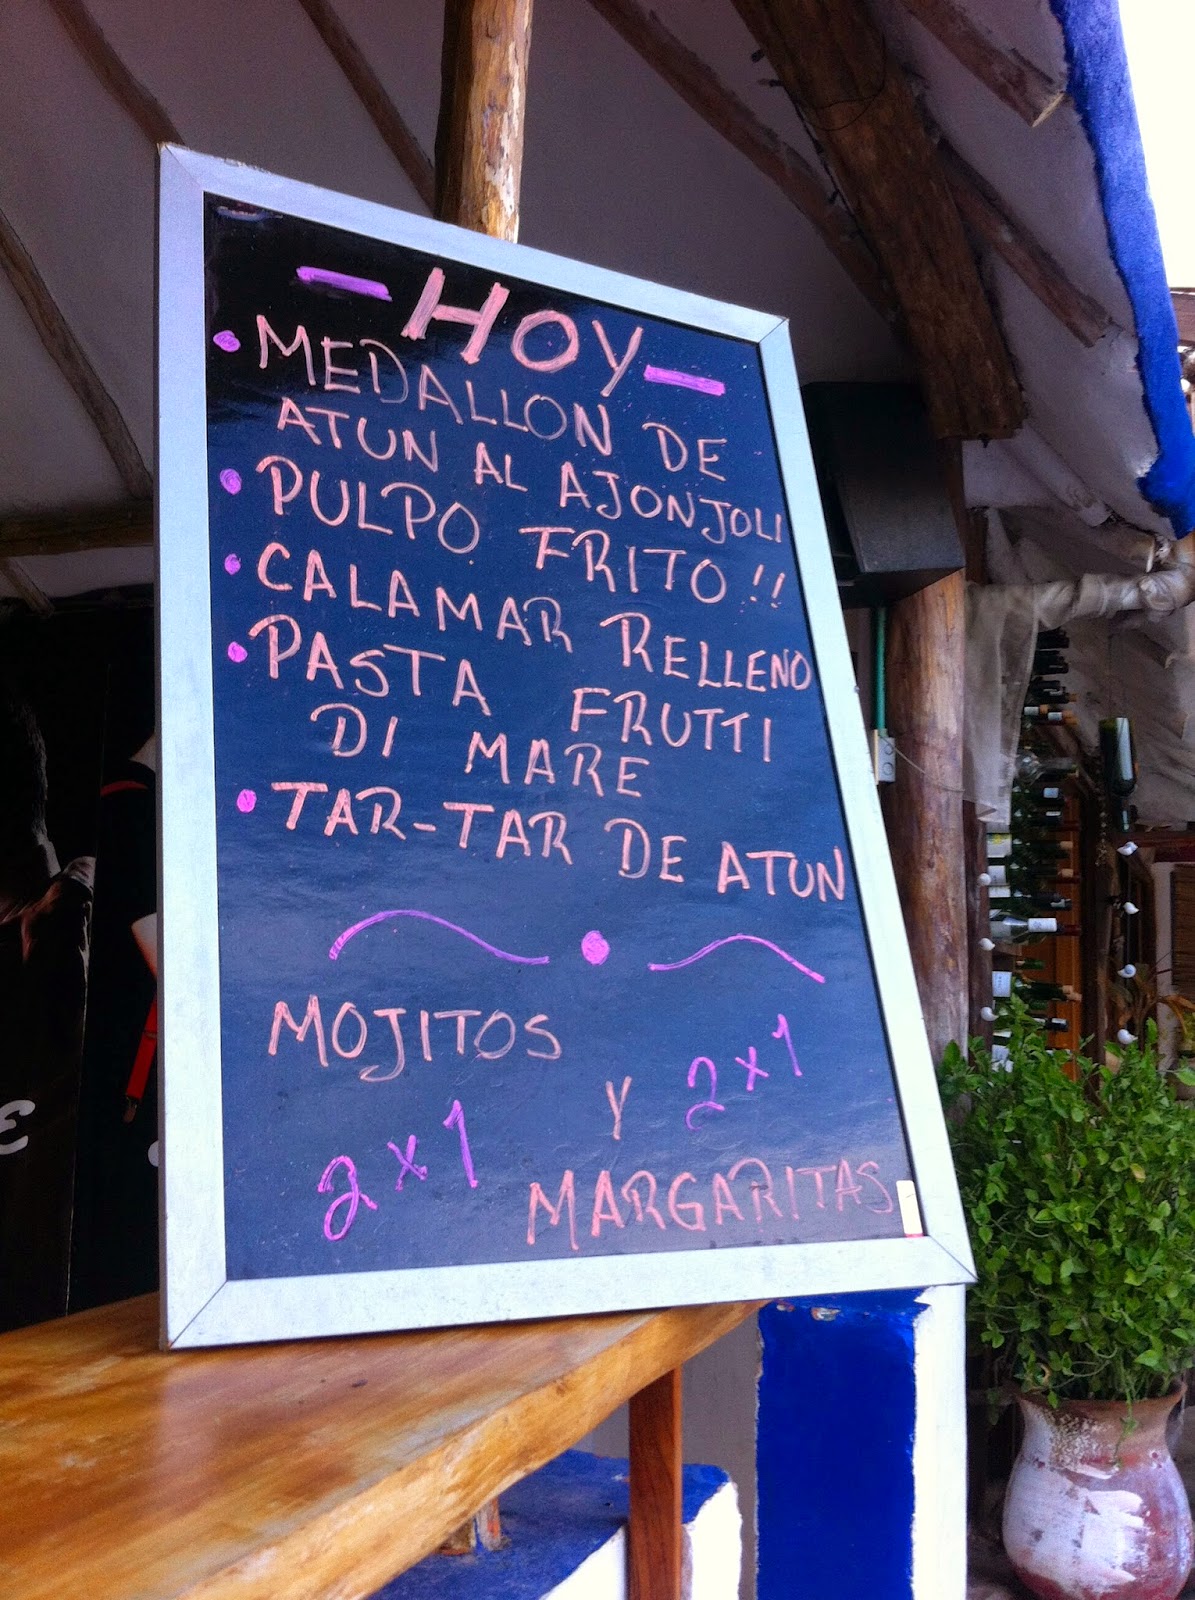 - HOY -
• MEDALLON DE
ATUN AL AJONJOLI
• PULPO FRITO!!
• CALAMAR RELLENO
• PASTA FRUTTI
DI MARE
• TAR-TAR DE ATUN
MOJITOS
2x1
Y
2x1
MARGARITAS